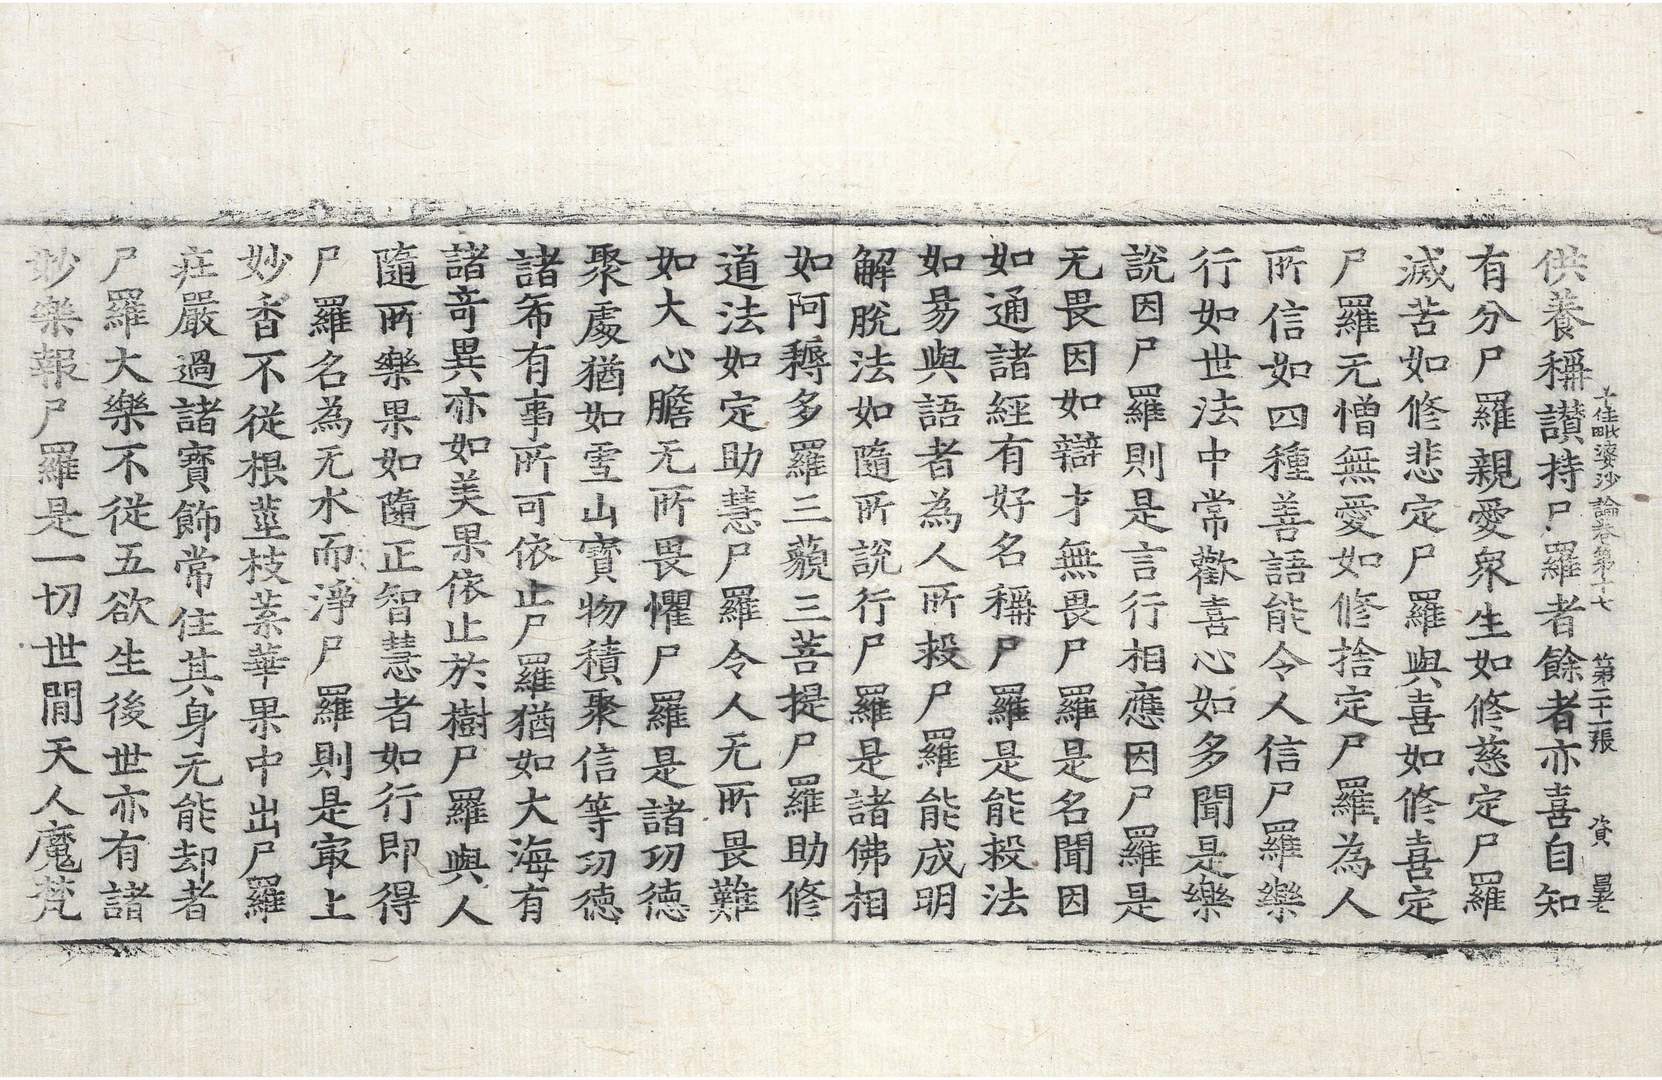 供養稱讃持尸羅者餘者亦喜自知
十住毗婆沙論卷第十七 第二十張 資
有分尸羅親愛衆生如修慈定尸羅
滅苦如修悲定尸羅與喜如修喜定
尸羅无憎無愛如修捨定尸羅為人
所信如四種善語能令人信尸羅樂
行如世法中常歡喜心如多聞是樂
說因尸羅則是言行相應因尸羅是
无畏因如辯才無畏尸羅是名聞因
如通諸經有好名稱尸羅是能救法
如易與語者為人所救尸羅能成明
解脫法如隨所說行尸羅是諸佛相
如阿耨多羅三藐三菩提尸羅助修
道法如定助慧尸羅令人无所畏難
如大心膽无所畏懼尸羅是諸功德
聚處猶如雪山寶物積聚信等功德
諸希有事所可依止尸羅猶如大海有
諸奇異亦如美果依止於樹尸羅與人
隨所樂果如隨正智慧者如行即得
尸羅名為无水而淨尸羅則是㝡上
妙香不從根莖枝葉華果中出尸羅
庄嚴過諸寶飾常住其身无能却者
尸羅大樂不從五欲生後世亦有諸
妙樂報尸羅是一切世閒天人魔梵